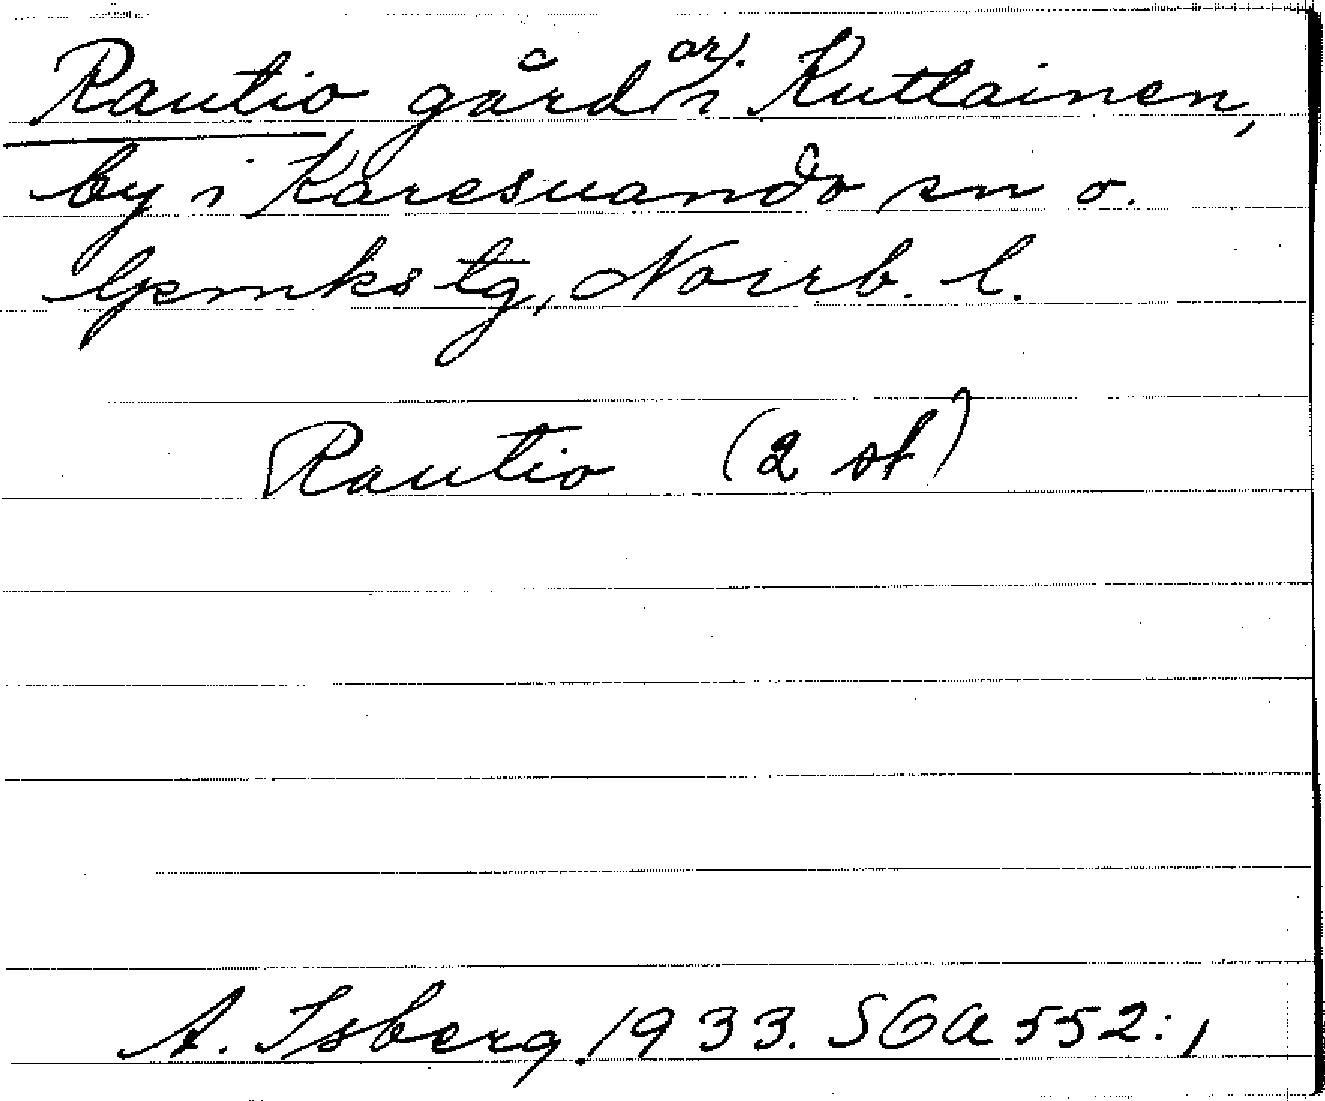 Rautio gårdar i Kuttainen,
by i Karesuando sn o.
lpmks tg, Norrb. l.
Rautio (2 st)
A. Isberg 1933. SOA 552:1